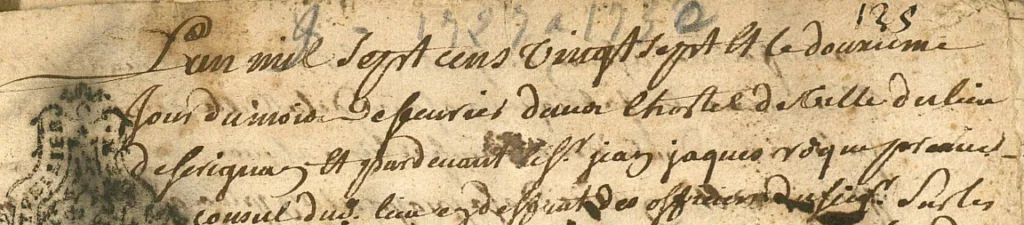 J - 1727 a 1730
125
L'an mil sept cens vingt sept et le douzieme
Jour du mois de feurier dans lhostel de Ville du lieu
de serignan et pardevant le sr. jean jaques roque premier
consul dud. lieu en des officiers Sur les